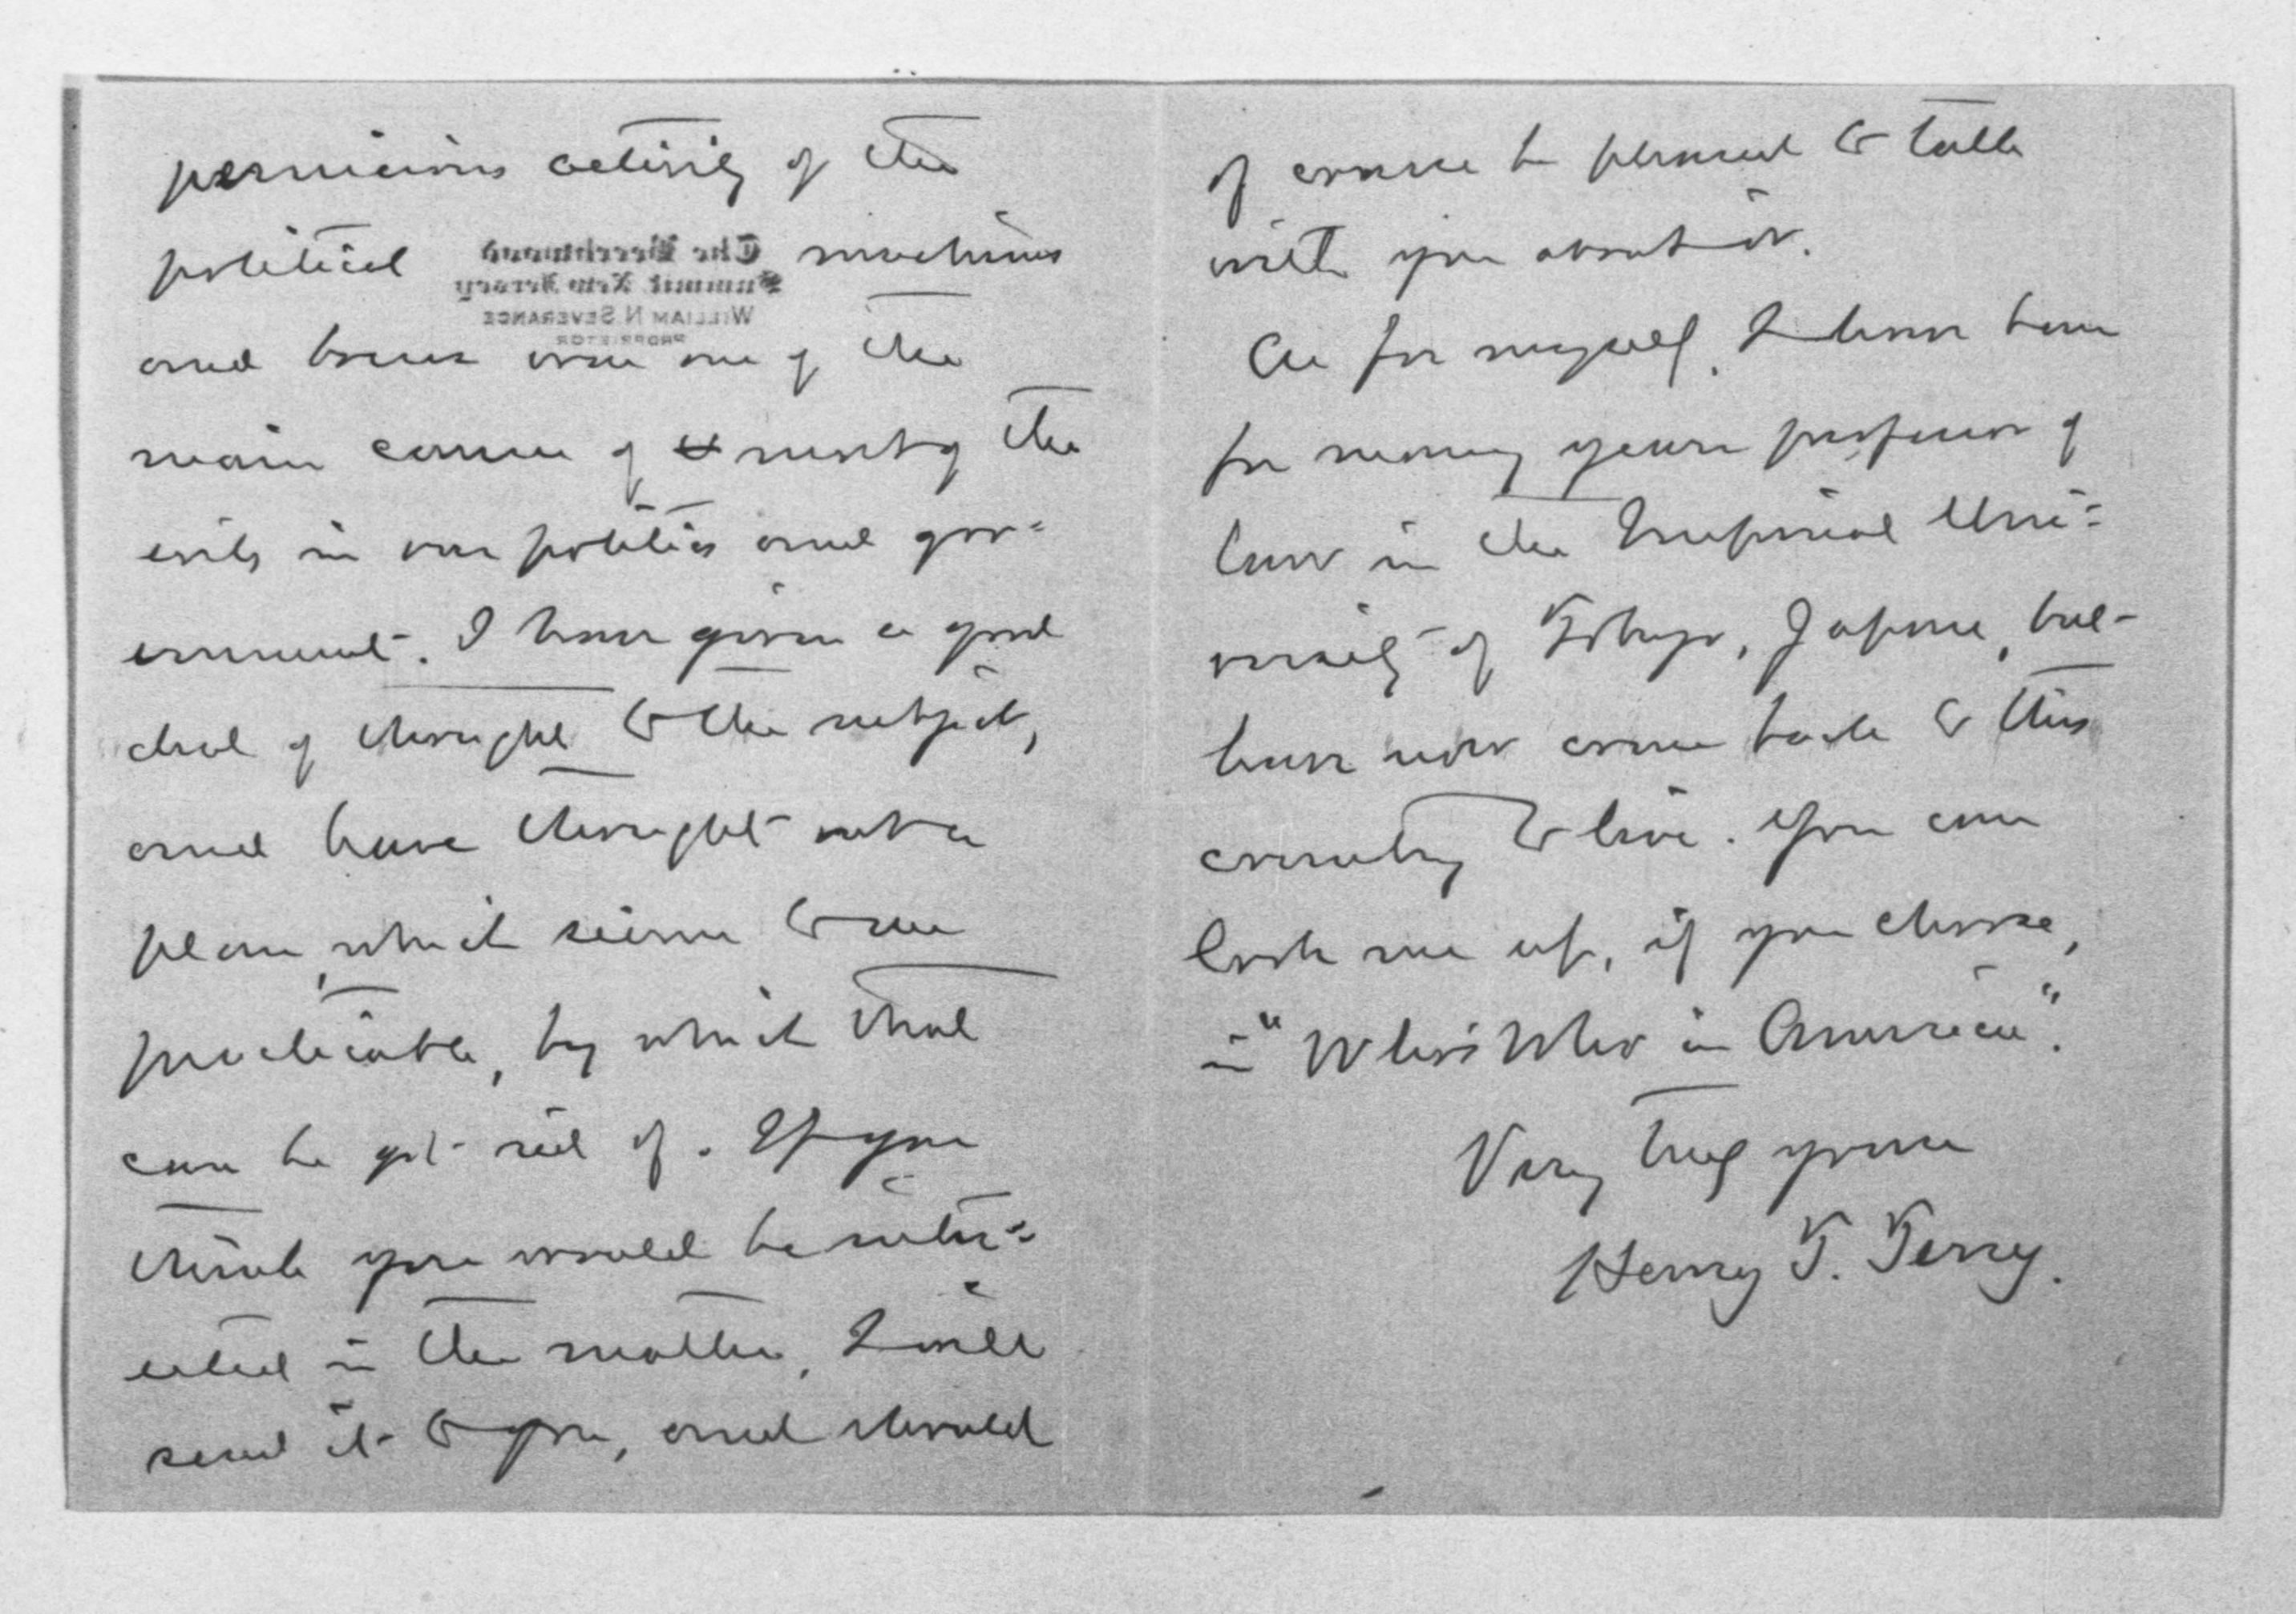 pernicious activity of the
political machines
The Beechwood
Summit New Jersey
WILLIAM N SEVERANCE
PROPRIETOR
and bosses was one of the
main causes of most of the
evils in our politics and gov=
ernment. I have given a good
deal of thought to the subject,
and have thought out a
plan, which seems to me
practicable, by which that
can be got rid of. If you
think you would be inter=
ested in the matter, I will
send it to you, and should
of course be pleased to talk
with you about it.
As for myself, I have been
for many years professor of
law in the Imperial Uni=
versity of Tokyo, Japan, but
have now come back to this
country to live. You can
look me up, if you choose,
in "Who's Who in America".
Very truly yours
Henry T. Terry.